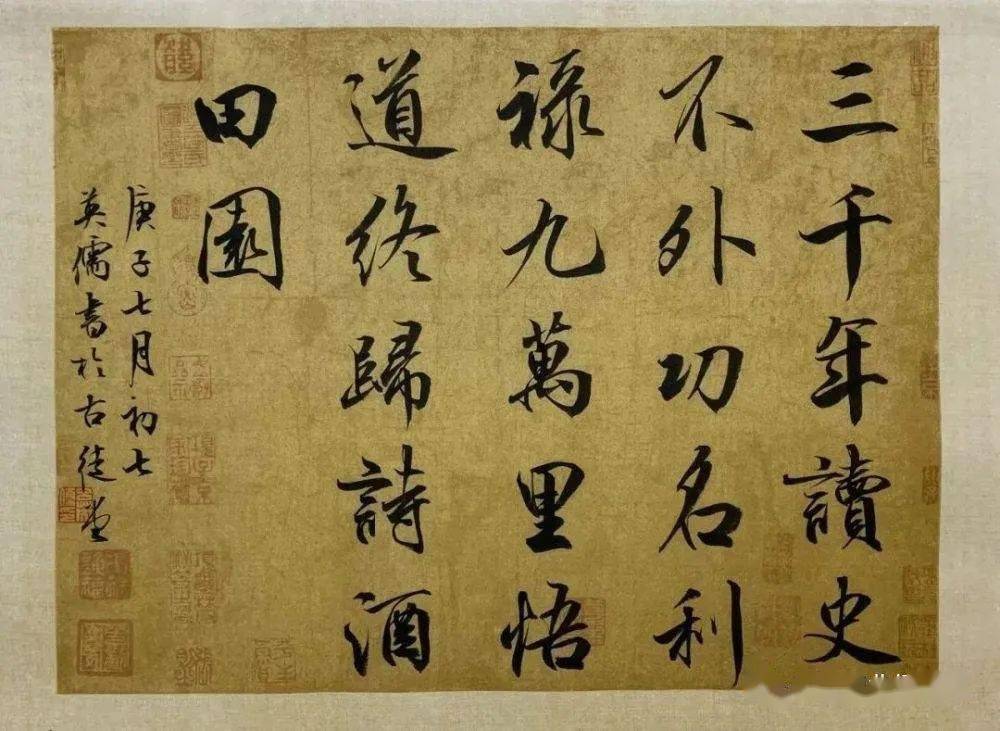 三千年讀史
不外功名利
祿九萬里悟
道終歸詩酒
田園
庚子七月初七
英儒書於古徒堂